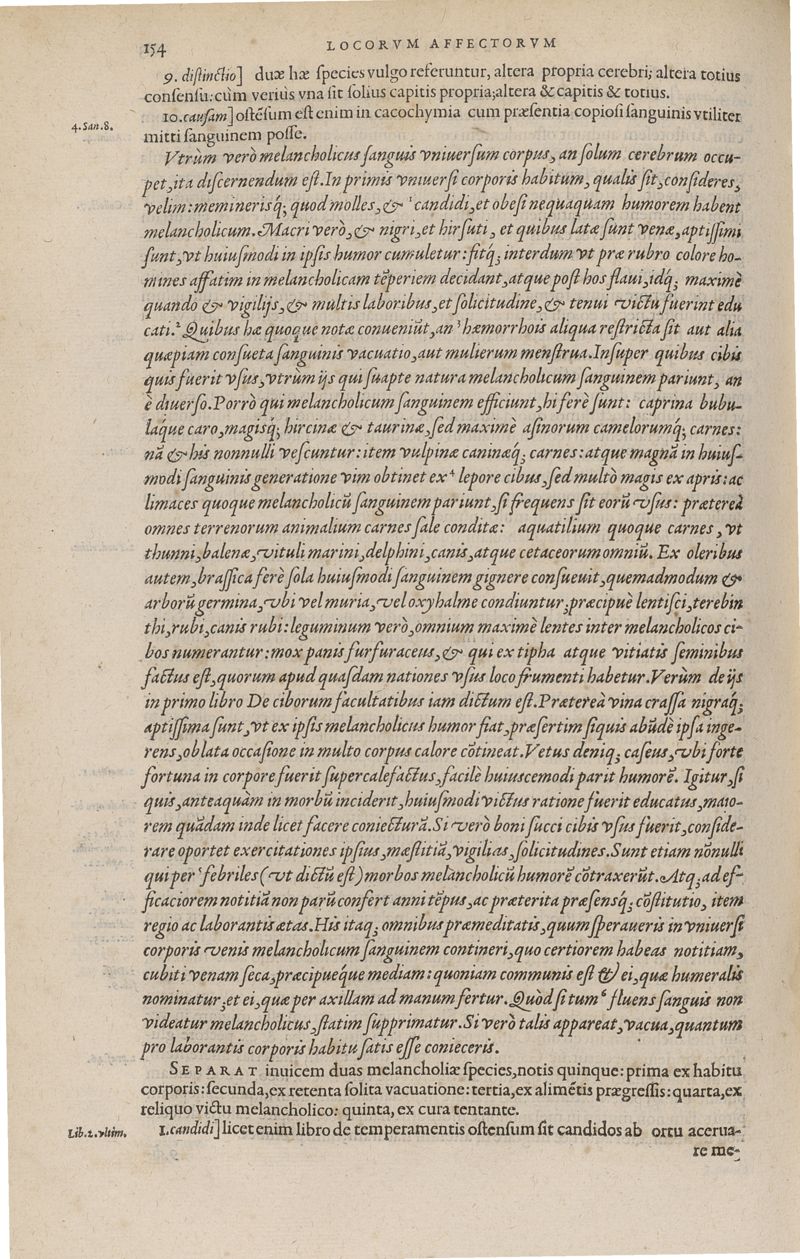 154
LOCORVM AFFECTORVM
9. distinctio] duæ hæ species vulgo referuntur, altera propria cerebri; altera totius
consensu: cùm verius vna sit solius capitis propria; altera & capitis & totius.
10. causam] ostẽsum est enim in cacochymia cum præsentia copiosi sanguinis vtiliter
4. San. 8.
mitti sanguinem posse.
Vtrùm verò melancholicus sanguis vniuersum corpus, an solum cerebrum occu-
pet, ita discernendum est. In primis vniuersi corporis habitum, qualis sit, consideres,
velim: memineris q́; quod molles, & ¹ candidi, et obesi nequaquam humorem habent
melancholicum. Macri verò, & nigri, et hirsuti, et quibus latæ sunt venæ, aptissimi
sunt, vt huiusmodi in ipsis humor cumuletur: fit q́; interdum vt præ rubro colore ho-
mines affatim in melancholicam tẽperiem decidant, atque post hos flaui, id q́; maximè
quando & vigilijs, & multis laboribus, et solicitudine, & tenui victu fuerint edu
cati. ² Quibus hæ quoque notæ conueniũt, an ³ hæmorrhois aliqua restricta sit aut alia
quæpiam consueta sanguinis vacuatio, aut mulierum menstrua. Insuper quibus cibis
quis fuerit vsus, vtrùm ijs qui suapte natura melancholicum sanguinem pariunt, an
è diuerso. Porrò qui melancholicum sanguinem efficiunt, hi ferè sunt: caprina bubu-
láque caro, magis q́; hircinæ & taurinæ, sed maximè asinorum camelorum q́; carnes:
nã & his nonnulli vescuntur: item vulpinæ caninæ q́; carnes: atque magnã in huius-
modi sanguinis generatione vim obtinet ex ⁴ lepore cibus, sed multò magis ex apris: ac
limaces quoque melancholicũ sanguinem pariunt, si frequens sit eorũ vsus: prætereà
omnes terrenorum animalium carnes sale conditæ: aquatilium quoque carnes, vt
thunni, balenæ, vituli marini, delphini, canis, atque cetaceorum omniũ. Ex oleribus
autem, brassica ferè sola huiusmodi sanguinem gignere consueuit, quemadmodum &
arborũ germina, vbi vel muria, vel oxyhalme condiuntur, præcipuè lentisci, terebin
thi, rubi, canis rubi: leguminum verò, omnium maximè lentes inter melancholicos ci-
bos numerantur: mox panis furfuraceus, & qui ex tipha atque vitiatis seminibus
factus est, quorum apud quasdam nationes vsus loco frumenti habetur. Verùm de ijs
in primo libro De ciborum facultatibus iam dictum est. Prætereà vina crassa nigra q́;
aptissima sunt, vt ex ipsis melancholicus humor fiat, præsertim siquis abũdè ipsa inge-
rens, oblata occasione in multo corpus calore cõtineat. Vetus deniq; caseus, vbi forte
fortuna in corpore fuerit supercalefactus, facilè huiuscemodi parit humorẽ. Igitur, si
quis, anteaquàm in morbũ inciderit, huiusmodi victus ratione fuerit educatus, maio-
rem quãdam inde licet facere coniecturã. Si verò boni succi cibis vsus fuerit, conside-
rare oportet exercitationes ipsius, mæstitiã, vigilias, solicitudines. Sunt etiam nõnulli
qui per ⁵ febriles (vt dictũ est) morbos melãcholicũ humorẽ cõtraxerũt. Atq; ad ef-
ficaciorem notitiã non parũ confert anni tẽpus, ac præterita præsens q́; cõstitutio, item
regio ac laborantis ætas. His itaq; omnibus præmeditatis, quum speraueris in vniuersi
corporis venis melancholicum sanguinem contineri, quo certiorem habeas notitiam,
cubiti venam seca, præcipuéque mediam: quoniam communis est & ei, quæ humeralis
nominatur, et ei, quæ per axillam ad manum fertur. Quòd si tum ⁶ fluens sanguis non
videatur melancholicus, statim supprimatur. Si verò talis appareat, vacua, quantum
pro laborantis corporis habitu satis esse conieceris.
SEPARAT inuicem duas melancholiæ species, notis quinque: prima ex habitu
corporis: secunda, ex retenta solita vacuatione: tertia, ex alimẽtis prægressis: quarta, ex
reliquo victu melancholico: quinta, ex cura tentante.
Lib. 2. vltim.
1. candidi] licet enim libro de temperamentis ostensum sit candidos ab ortu acerua-
re me-